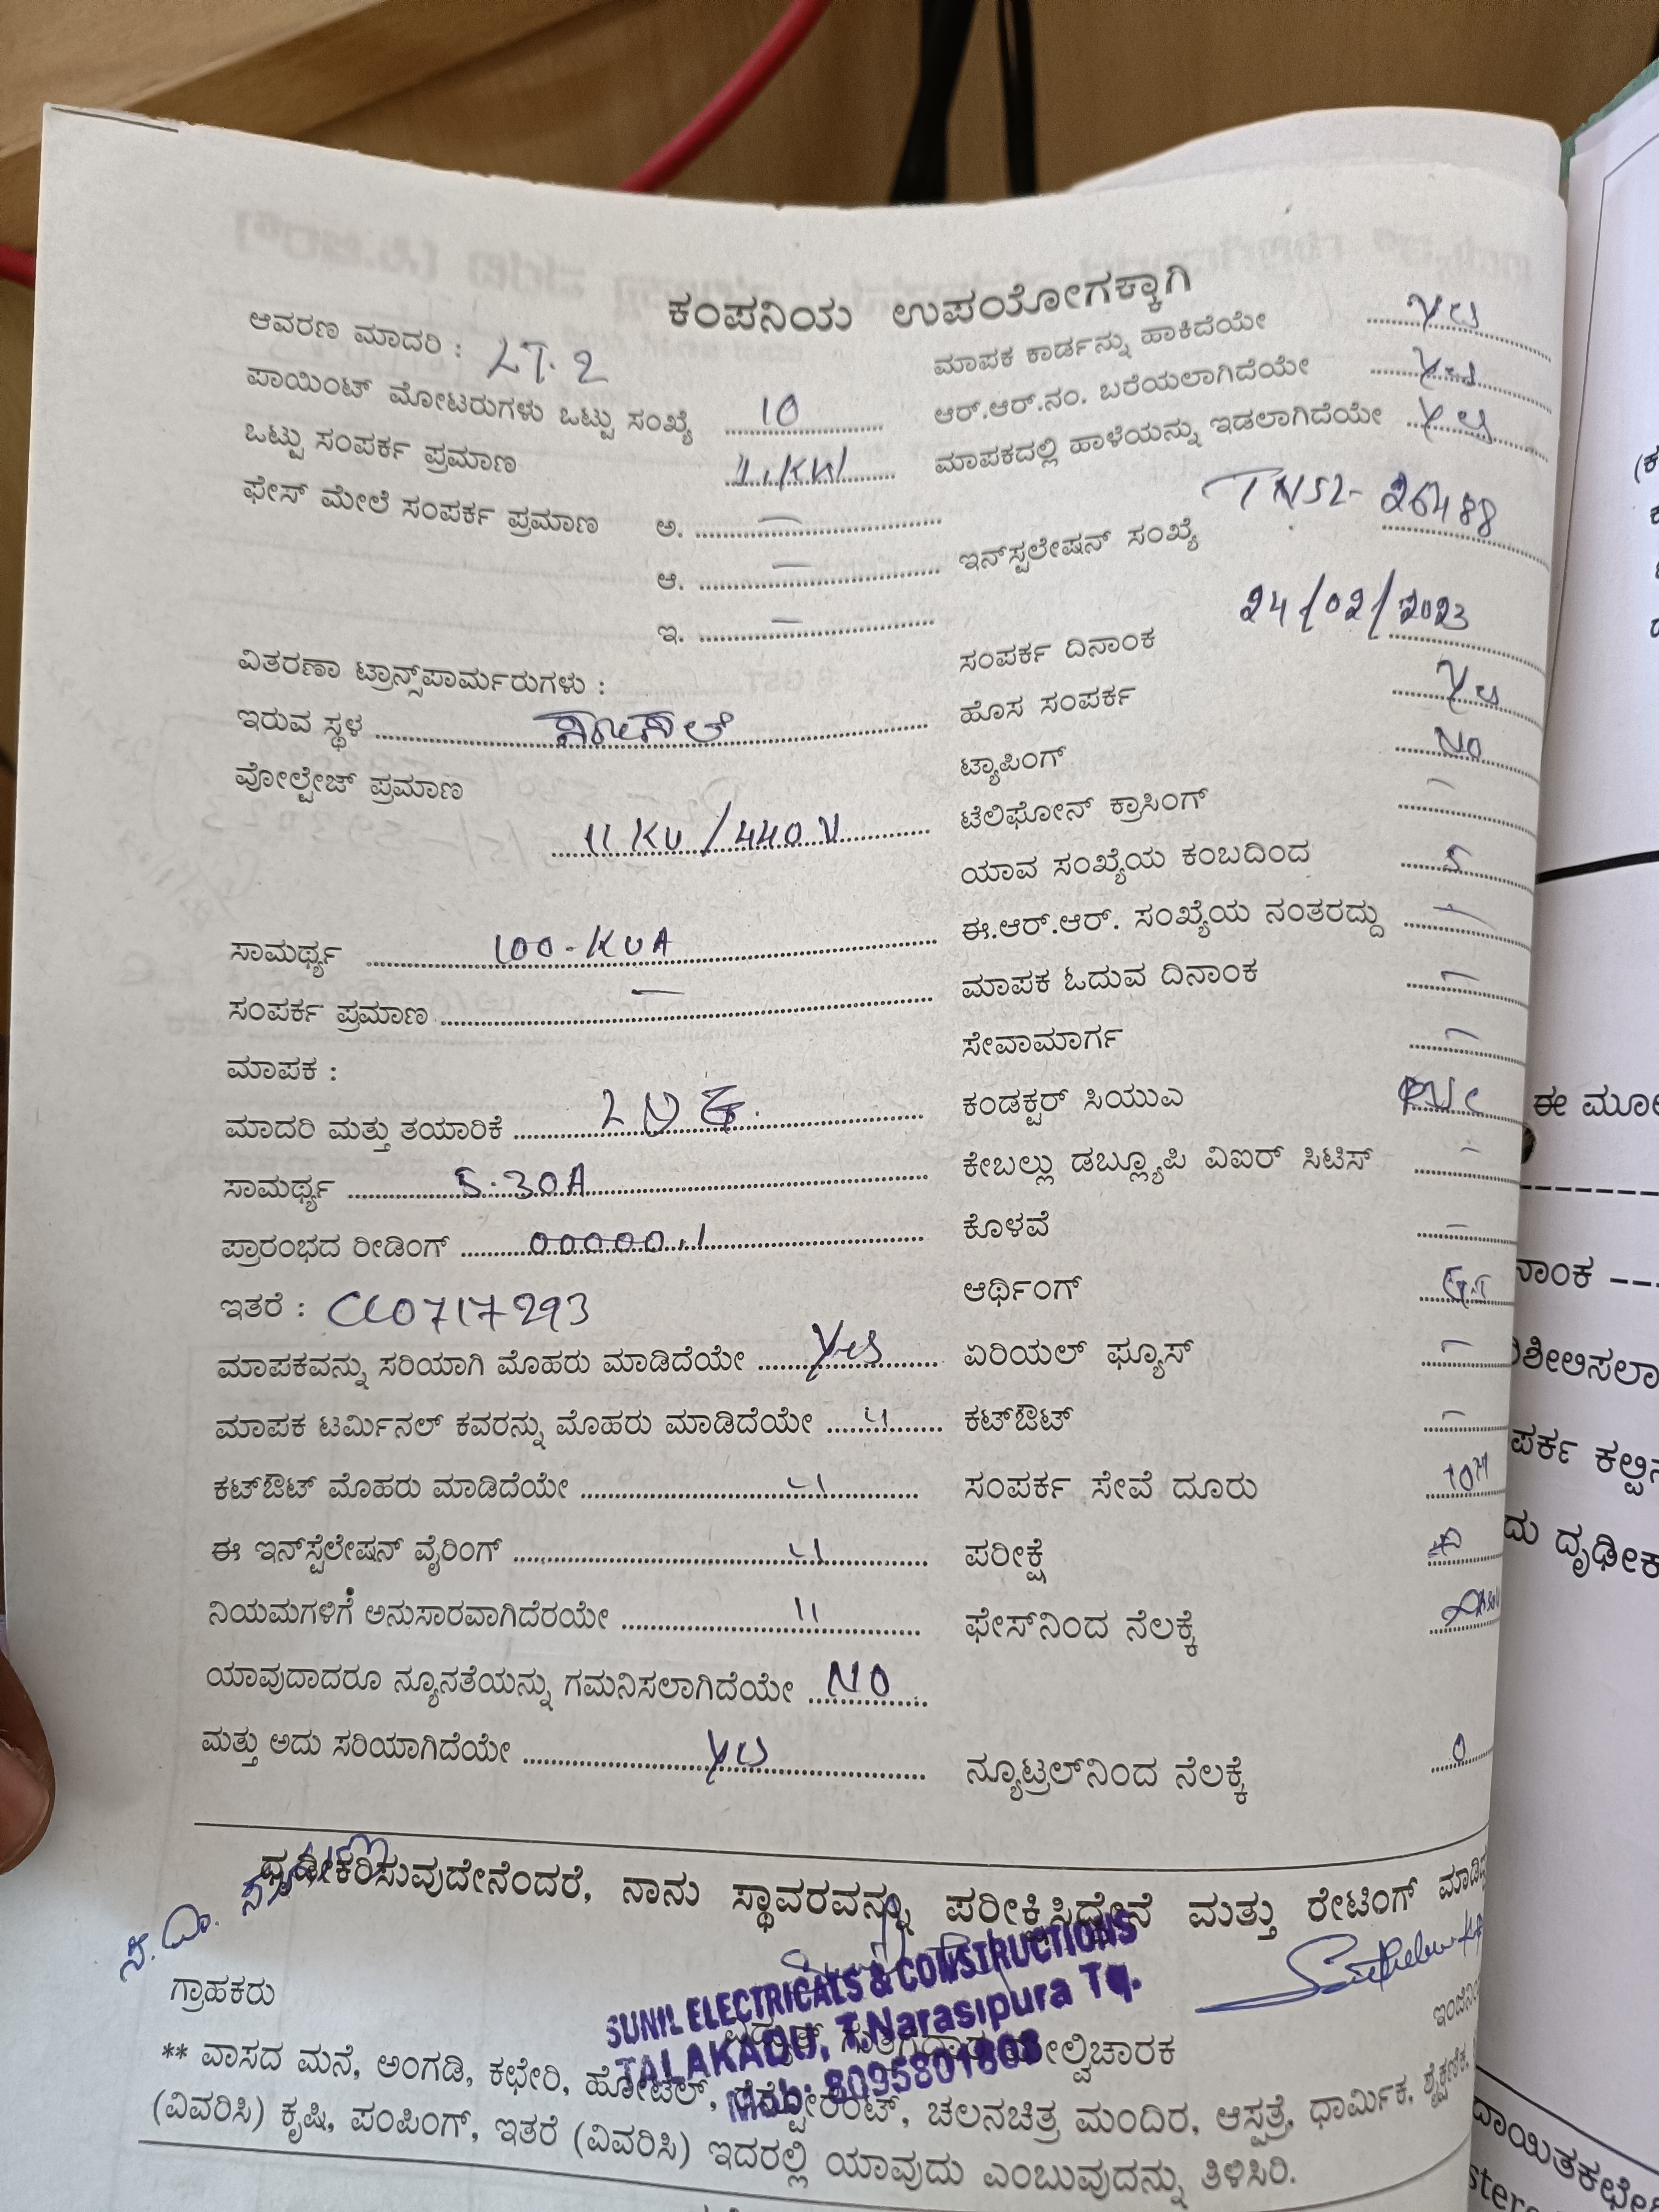 ಕಂಪನಿಯ ಉಪಯೋಗಕ್ಕಾಗಿ
ಆವರಣ ಮಾದರಿ : LT.2
ಪಾಯಿಂಟ್ ಮೋಟರುಗಳು ಒಟ್ಟು ಸಂಖ್ಯೆ 10
ಒಟ್ಟು ಸಂಪರ್ಕ ಪ್ರಮಾಣ
ಫೇಸ್ ಮೇಲೆ ಸಂಪರ್ಕ ಪ್ರಮಾಣ ಅ. —
ಆ. —
ಇ. —
ವಿತರಣಾ ಟ್ರಾನ್ಸ್‌ಪಾರ್ಮರುಗಳು :
ಇರುವ ಸ್ಥಳ
ವೋಲ್ಟೇಜ್ ಪ್ರಮಾಣ
11 KV / 440 V
ಸಾಮರ್ಥ್ಯ 100-KVA
ಸಂಪರ್ಕ ಪ್ರಮಾಣ —
ಮಾಪಕ :
ಮಾದರಿ ಮತ್ತು ತಯಾರಿಕೆ
ಸಾಮರ್ಥ್ಯ 5-30A
ಪ್ರಾರಂಭದ ರೀಡಿಂಗ್ 00000.1
ಇತರೆ :
ಮಾಪಕವನ್ನು ಸರಿಯಾಗಿ ಮೊಹರು ಮಾಡಿದೆಯೇ Yes
ಮಾಪಕ ಟರ್ಮಿನಲ್ ಕವರನ್ನು ಮೊಹರು ಮಾಡಿದೆಯೇ 11
ಕಟ್‌ಔಟ್ ಮೊಹರು ಮಾಡಿದೆಯೇ 11
ಈ ಇನ್‌ಸ್ಪೆಲೇಷನ್ ವೈರಿಂಗ್ 11
ನಿಯಮಗಳಿಗೆ ಅನುಸಾರವಾಗಿದೆರಯೇ 11
ಯಾವುದಾದರೂ ನ್ಯೂನತೆಯನ್ನು ಗಮನಿಸಲಾಗಿದೆಯೇ NO
ಮತ್ತು ಅದು ಸರಿಯಾಗಿದೆಯೇ Yes
ಮಾಪಕ ಕಾರ್ಡನ್ನು ಹಾಕಿದೆಯೇ Yes
ಆರ್.ಆರ್.ನಂ. ಬರೆಯಲಾಗಿದೆಯೇ Yes
ಮಾಪಕದಲ್ಲಿ ಹಾಳೆಯನ್ನು ಇಡಲಾಗಿದೆಯೇ Yes
ಇನ್‌ಸ್ಪಲೇಷನ್ ಸಂಖ್ಯೆ TNSL-26488
ಸಂಪರ್ಕ ದಿನಾಂಕ 24/02/2023
ಹೊಸ ಸಂಪರ್ಕ Yes
ಟ್ಯಾಪಿಂಗ್ NO
ಟೆಲಿಫೋನ್ ಕ್ರಾಸಿಂಗ್ —
ಯಾವ ಸಂಖ್ಯೆಯ ಕಂಬದಿಂದ 5
ಈ.ಆರ್.ಆರ್. ಸಂಖ್ಯೆಯ ನಂತರದ್ದು —
ಮಾಪಕ ಓದುವ ದಿನಾಂಕ —
ಸೇವಾಮಾರ್ಗ —
ಕಂಡಕ್ಟರ್ ಸಿಯುವಿ PVC
ಕೇಬಲ್ಲು ಡಬ್ಲ್ಯೂಪಿ ವಿಐರ್ ಸಿಟಿಸ್ —
ಕೊಳವೆ —
ಆರ್ಥಿಂಗ್
ಏರಿಯಲ್ ಫ್ಯೂಸ್ —
ಕಟ್‌ಔಟ್ —
ಸಂಪರ್ಕ ಸೇವೆ ದೂರು 10M
ಪರೀಕ್ಷೆ
ಫೇಸ್‌ನಿಂದ ನೆಲಕ್ಕೆ
ನ್ಯೂಟ್ರಲ್‌ನಿಂದ ನೆಲಕ್ಕೆ 0
ಧೃಡೀಕರಿಸುವುದೇನೆಂದರೆ, ನಾನು ಸ್ಥಾವರವನ್ನು ಪರೀಕ್ಷಿಸಿದ್ದೇನೆ ಮತ್ತು ರೇಟಿಂಗ್
ಗ್ರಾಹಕರು
SUNIL ELECTRICALS & CONSTRUCTIONS
TALAKADU, T.Narasipura Tq.
Mob: 8095801808
** ವಾಸದ ಮನೆ, ಅಂಗಡಿ, ಕಛೇರಿ, ಹೋಟೆಲ್, ರೆಸ್ಟೋರೆಂಟ್, ಚಲನಚಿತ್ರ ಮಂದಿರ, ಆಸ್ಪತ್ರೆ, ಧಾರ್ಮಿಕ, ಶೈಕ್ಷಣಿಕ,
(ವಿವರಿಸಿ) ಕೃಷಿ, ಪಂಪಿಂಗ್, ಇತರೆ (ವಿವರಿಸಿ) ಇದರಲ್ಲಿ ಯಾವುದು ಎಂಬುವುದನ್ನು ತಿಳಿಸಿರಿ.